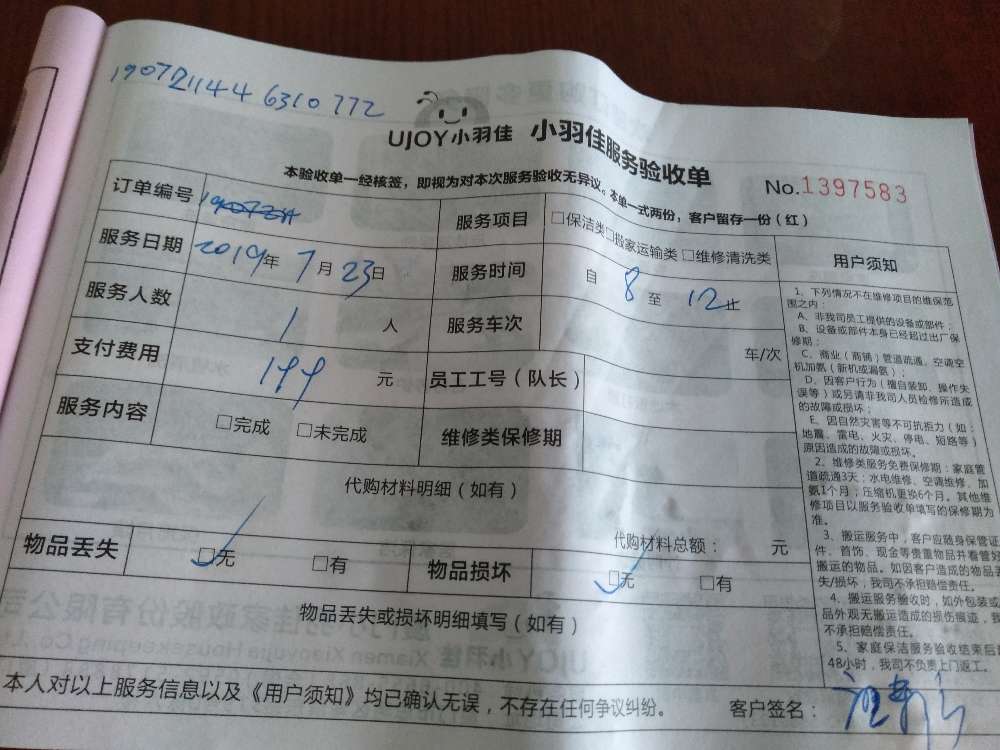 1907211446310772
UJOY小羽佳 小羽佳服务验收单
No.1397583
本验收单一经核签，即视为对本次服务验收无异议。本单一式两份，客户留存一份（红）
订单编号
服务项目 □保洁类□搬家运输类 □维修清洗类
用户须知
服务日期 2019年 7月 23日
服务时间 自 8 至 12 止
服务人数 1 人
服务车次 车/次
支付费用 199 元
员工工号（队长）
服务内容 □完成 □未完成
维修类保修期
代购材料明细（如有）
代购材料总额： 元
物品丢失 □无 □有
物品损坏 □无 □有
物品丢失或损坏明细填写（如有）
1、下列情况不在维修项目的维保范
围之内：
A、非我司员工提供的设备或部件；
B、设备或部件本身已经超过出厂保
修期；
C、商业（商铺）管道疏通、空调空
机加氨（新机或漏氨）；
D、因客户行为（擅自装卸、操作失
误等）或另请非我司人员检修所造成
的故障或损坏；
E、因自然灾害等不可抗拒力（如：
地震、雷电、火灾、停电、短路等）
原因造成的故障或损坏。
2、维修类服务免费保修期：家庭管
道疏通3天；水电维修、空调维修、加
氨1个月；压缩机更换6个月。其他维
修项目以服务验收单填写的保修期为
准。
3、搬运服务中，客户应随身保管证
件、首饰、现金等贵重物品并看管好
搬运的物品。如因客户造成的物品丢
失/损坏，我司不承担赔偿责任。
4、搬运服务验收时，如外包装或
品外观无搬运造成的损伤痕迹，我
不承担赔偿责任。
5、家庭保洁服务验收结束后超
48小时，我司不负责上门返工。
本人对以上服务信息以及《用户须知》均已确认无误，不存在任何争议纠纷。 客户签名：